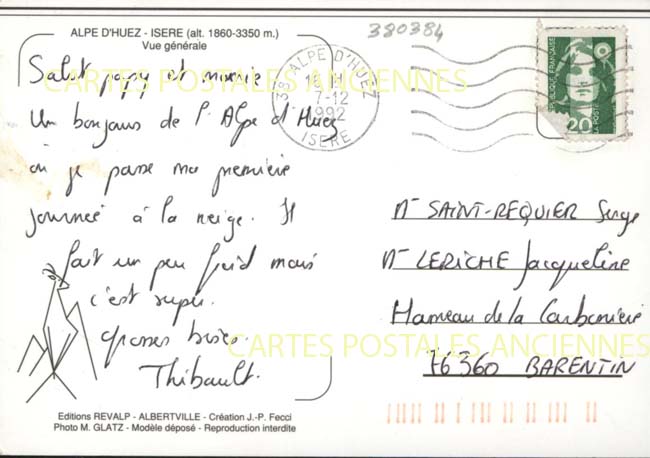 ALPE D'HUEZ - ISERE (alt. 1860-3350 m.)
Vue générale
380384
38 ALPE D'HUEZ
7-12
1992
ISERE
REPUBLIQUE FRANÇAISE
2,20
LA POSTE
Salut papy et mamie
Un bonjour de l'Alpe d'Huez
où je passe ma première
journée à la neige. Il
fait un peu froid mais
c'est super.
grosses bises.
Thibault.
Mr SAINT-REQUIER Serge
Me LERICHE Jacqueline
Hameau de la Carbonnière
76360 BARENTIN
CARTES POSTALES ANCIENNES
CARTES POSTALES ANCIENNES
Editions REVALP - ALBERTVILLE - Création J.-P. Fecci
Photo M. GLATZ - Modèle déposé - Reproduction interdite